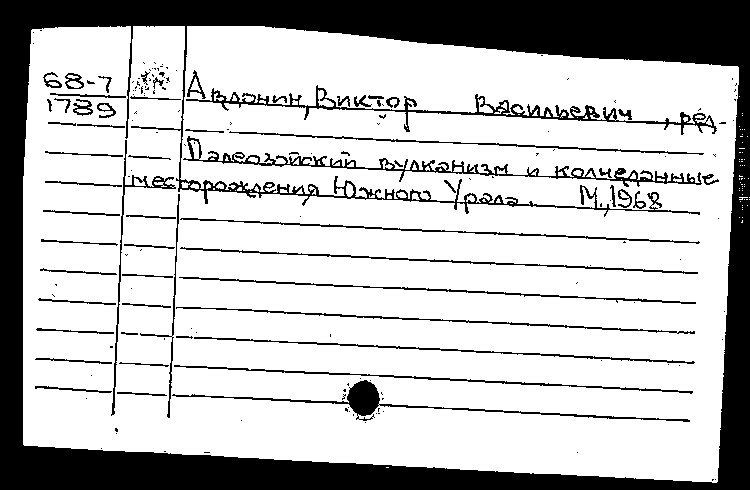 68-7
1789
Авдонин, Виктор Васильевич, ред.
Палеозойский вулканизм и колчеданные
месторождения Южного Урала. М., 1968